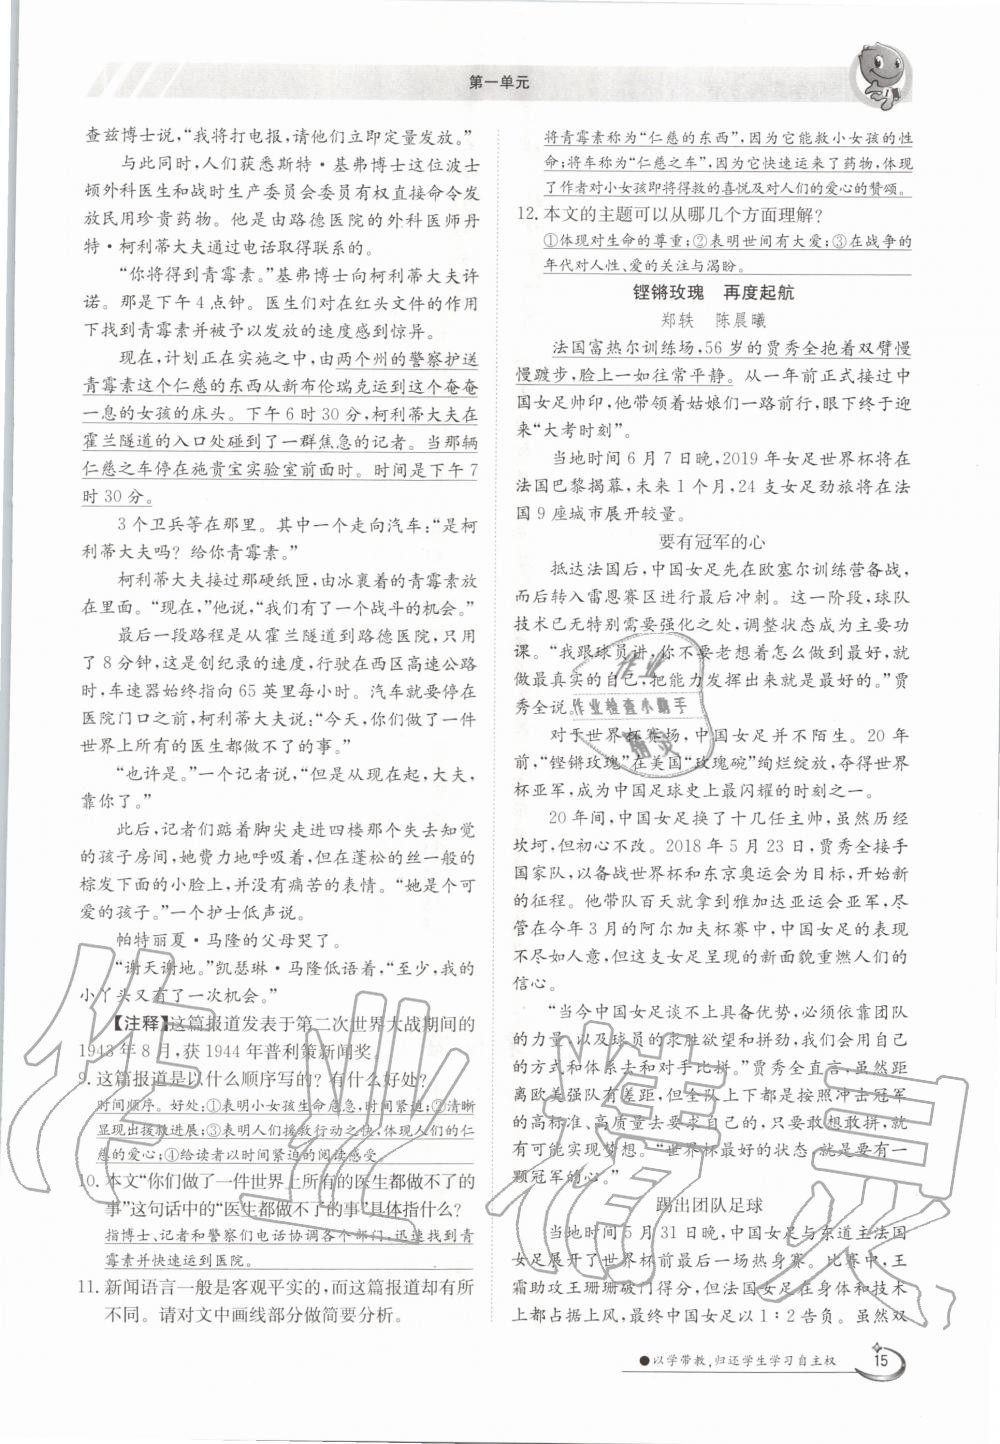 第一单元
查兹博士说，“我将打电报，请他们立即定量发放。”
与此同时，人们获悉斯特·基弗博士这位波士
顿外科医生和战时生产委员会委员有权直接命令发
放民用珍贵药物。他是由路德医院的外科医师丹
特·柯利蒂大夫通过电话取得联系的。
“你将得到青霉素。”基弗博士向柯利蒂大夫许
诺。那是下午4点钟。医生们对在红头文件的作用
下找到青霉素并被予以发放的速度感到惊异。
现在，计划正在实施之中，由两个州的警察护送
青霉素这个仁慈的东西从新布伦瑞克运到这个奄奄
一息的女孩的床头。下午6时30分，柯利蒂大夫在
霍兰隧道的入口处碰到了一群焦急的记者。当那辆
仁慈之车停在施贵宝实验室前面时。时间是下午7
时30分。
3个卫兵等在那里。其中一个走向汽车：“是柯
利蒂大夫吗？给你青霉素。”
柯利蒂大夫接过那硬纸匣，由冰裹着的青霉素放
在里面。“现在，”他说，“我们有了一个战斗的机会。”
最后一段路程是从霍兰隧道到路德医院，只用
了8分钟，这是创纪录的速度，行驶在西区高速公路
时，车速器始终指向65英里每小时。汽车就要停在
医院门口之前，柯利蒂大夫说：“今天，你们做了一件
世界上所有的医生都做不了的事。”
“也许是。”一个记者说，“但是从现在起，大夫，
靠你了。”
此后，记者们踮着脚尖走进四楼那个失去知觉
的孩子房间，她费力地呼吸着，但在蓬松的丝一般的
棕发下面的小脸上，并没有痛苦的表情。“她是个可
爱的孩子。”一个护士低声说。
帕特丽夏·马隆的父母哭了。
“谢天谢地。”凯瑟琳·马隆低语着，“至少，我的
小丫头又有了一次机会。”
【注释】这篇报道发表于第二次世界大战期间的
1943年8月，获1944年普利策新闻奖。
9. 这篇报道是以什么顺序写的？有什么好处？
时间顺序。好处：①表明小女孩生命危急，时间紧迫；②清晰
显现出拔救进展；③表明人们援救行动之快，体现人们的仁
慈的爱心；④给读者以时间紧迫的阅读感受。
10. 本文“你们做了一件世界上所有的医生都做不了的
事”这句话中的“医生都做不了的事”具体指什么？
指博士、记者和警察们电话协调各个部门，迅速找到青
霉素并快速运到医院。
11. 新闻语言一般是客观平实的，而这篇报道却有所
不同。请对文中画线部分做简要分析。
将青霉素称为“仁慈的东西”，因为它能救小女孩的性
命；将车称为“仁慈之车”，因为它快速运来了药物，体现
了作者对小女孩即将得救的喜悦及对人们的爱心的赞颂。
12. 本文的主题可以从哪几个方面理解？
①体现对生命的尊重；②表明世间有大爱；③在战争的
年代对人性、爱的关注与渴盼。
铿锵玫瑰　再度起航
郑轶　陈晨曦
法国富热尔训练场，56岁的贾秀全抱着双臂慢
慢踱步，脸上一如往常平静。从一年前正式接过中
国女足帅印，他带领着姑娘们一路前行，眼下终于迎
来“大考时刻”。
当地时间6月7日晚，2019年女足世界杯将在
法国巴黎揭幕，未来1个月，24支女足劲旅将在法
国9座城市展开较量。
要有冠军的心
抵达法国后，中国女足先在欧塞尔训练营备战，
而后转入雷恩赛区进行最后冲刺。这一阶段，球队
技术已无特别需要强化之处，调整状态成为主要功
课。“我跟球员讲，你不要老想着怎么做到最好，就
做最真实的自己，把能力发挥出来就是最好的。”贾
秀全说。
对于世界杯赛场，中国女足并不陌生。20年
前，“铿锵玫瑰”在美国“玫瑰碗”绚烂绽放，夺得世界
杯亚军，成为中国足球史上最闪耀的时刻之一。
20年间，中国女足换了十几任主帅，虽然历经
坎坷，但初心不改。2018年5月23日，贾秀全接手
国家队，以备战世界杯和东京奥运会为目标，开始新
的征程。他带队百天就拿到雅加达亚运会亚军，尽
管在今年3月的阿尔加夫杯赛中，中国女足的表现
不尽如人意，但这支女足呈现的新面貌重燃人们的
信心。
“当今中国女足谈不上具备优势，必须依靠团队
的力量，以及球员的求胜欲望和拼劲，用我们自己的
方式和体系去和对手比拼。”贾秀全直言，虽然距
离欧美强队有差距，但全队上下都是按照冲击冠军
的高标准、高质量去要求自己的，只要敢想敢拼，就
有可能实现梦想。“世界杯最好的状态，就是要有一
颗冠军的心。”
踢出团队足球
当地时间5月31日晚，中国女足与东道主法国
女足展开了世界杯前最后一场热身赛。比赛中，王
霜助攻王珊珊破门得分，但法国女足在身体和技术
上都占据上风，最终中国女足以1∶2告负。虽然双
作业
作业检查小助手
精灵
作业精灵
●以学带教，归还学生学习自主权
15